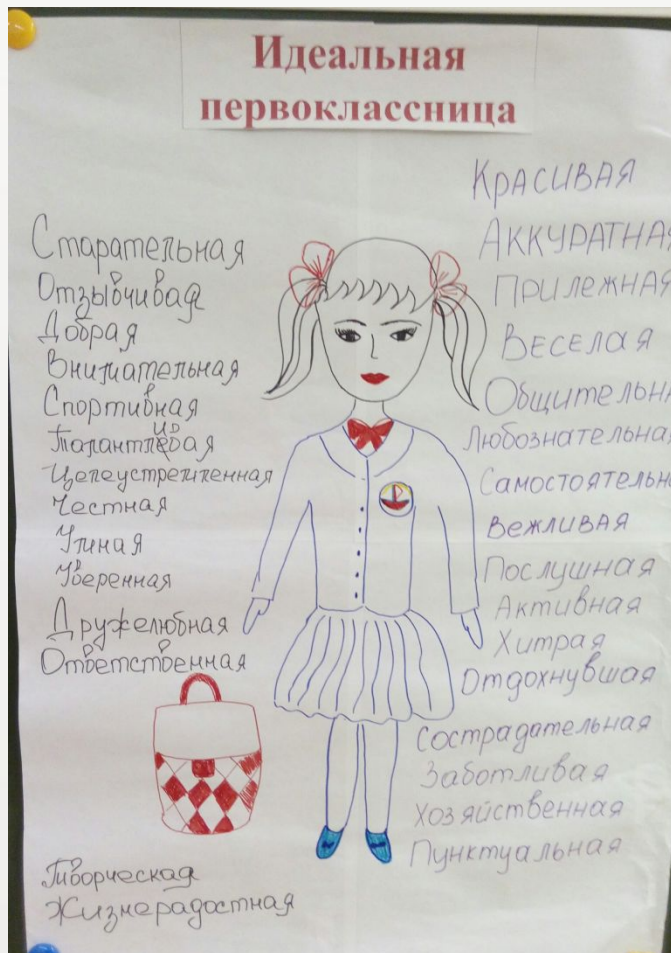 Идеальная
первоклассница
Старательная
Отзывчивая
Добрая
Внимательная
Спортивная
Талантливая
Целеустремленная
Честная
Умная
Уверенная
Дружелюбная
Ответственная
Творческая
Жизнерадостная
Красивая
Аккуратная
Прилежная
Веселая
Общительна
Любознательная
Самостоятельн
Вежливая
Послушная
Активная
Хитрая
Отдохнувшая
Сострадательная
Заботливая
Хозяйственная
Пунктуальная